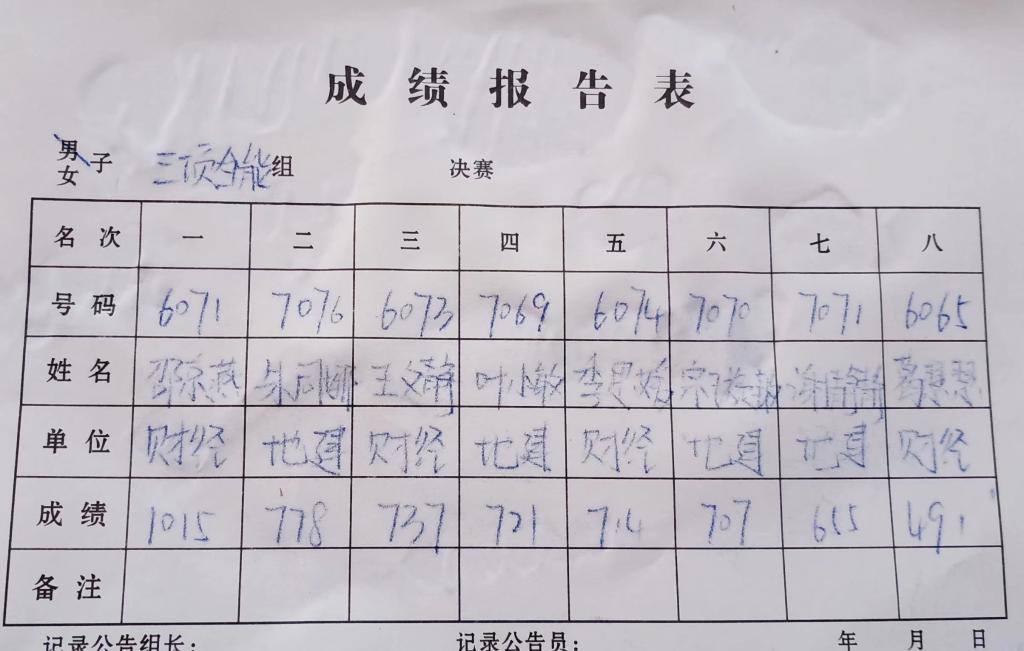 成绩报告表
男
女 子 三项全能组 决赛
名次 一 二 三 四 五 六 七 八
号码 6071 7076 6073 7069 6074 7070 7071 6065
姓名 邵京燕 朱同娜 王文静 叶小敏 李思 谢静静 葛慧慧
单位 财经 地建 财经 地建 财经 地建 地建 财经
成绩 1015 778 737 721 714 707 655 491
备注
记录公告组长： 记录公告员： 年 月 日